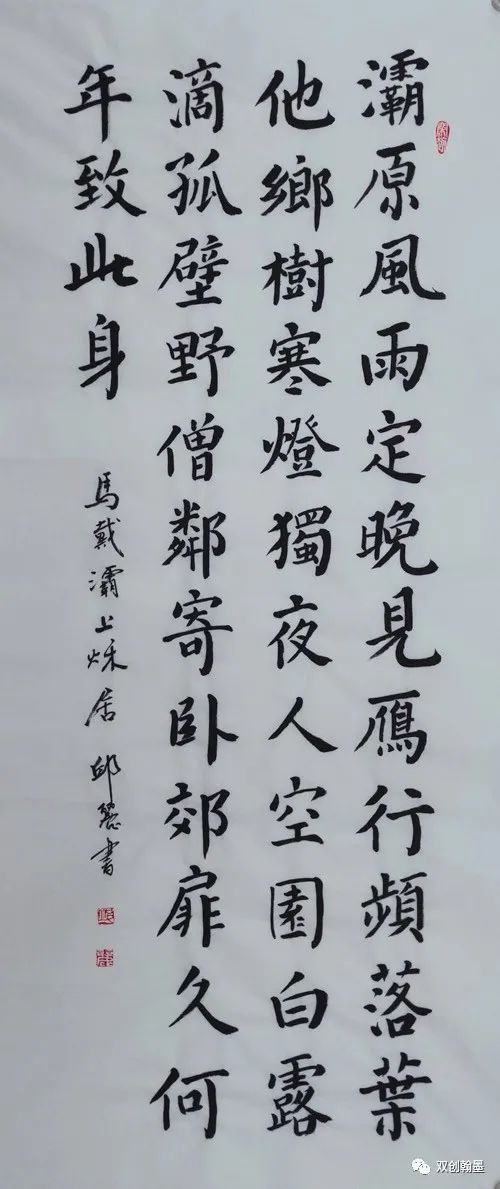 灞原風雨定晚見鴈行頻落葉
他鄉樹寒燈獨夜人空園白露
滴孤壁野僧鄰寄卧郊扉久何
年致此身
馬戴灞上秌居 邱麗書
双创翰墨